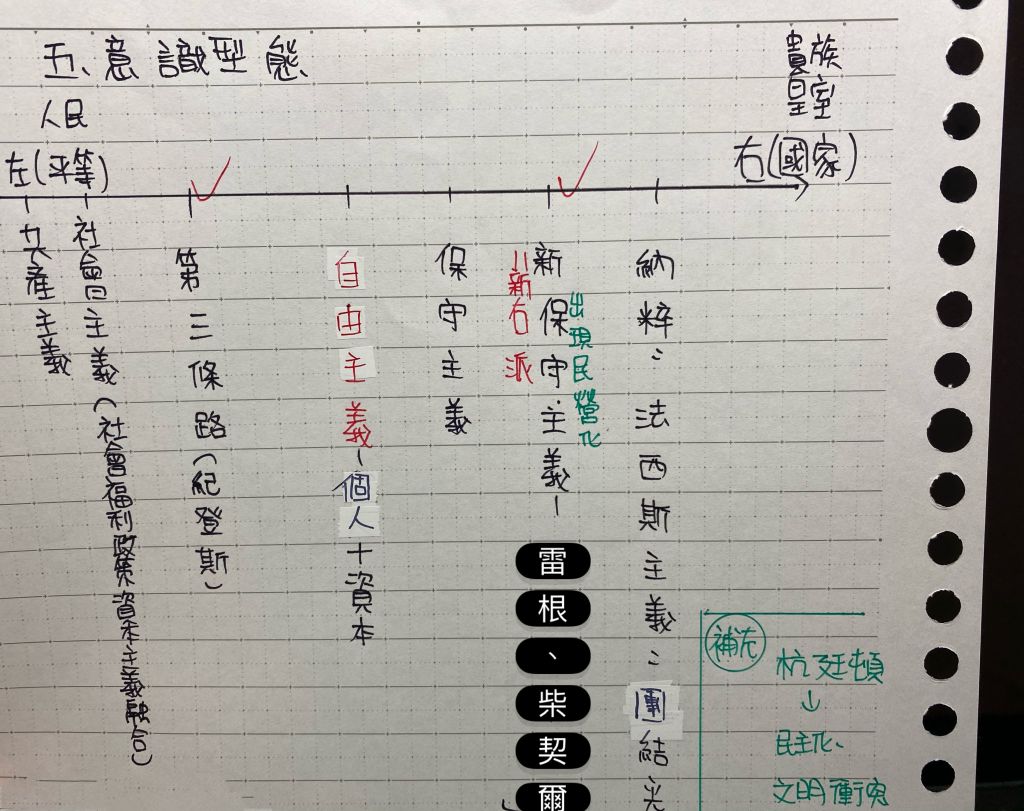 五、意識型態
人民
貴族
皇室
左(平等)
右(國家)
共產主義
社會主義(社會福利政策資本主義融合)
第三條路(紀登斯)
自由主義-個人+資本
保守主義
=新右派
新保守主義-雷根、柴契爾
出現民營化
納粹:法西斯主義:團結
補充
杭廷頓
↓
民主化、
文明衝突